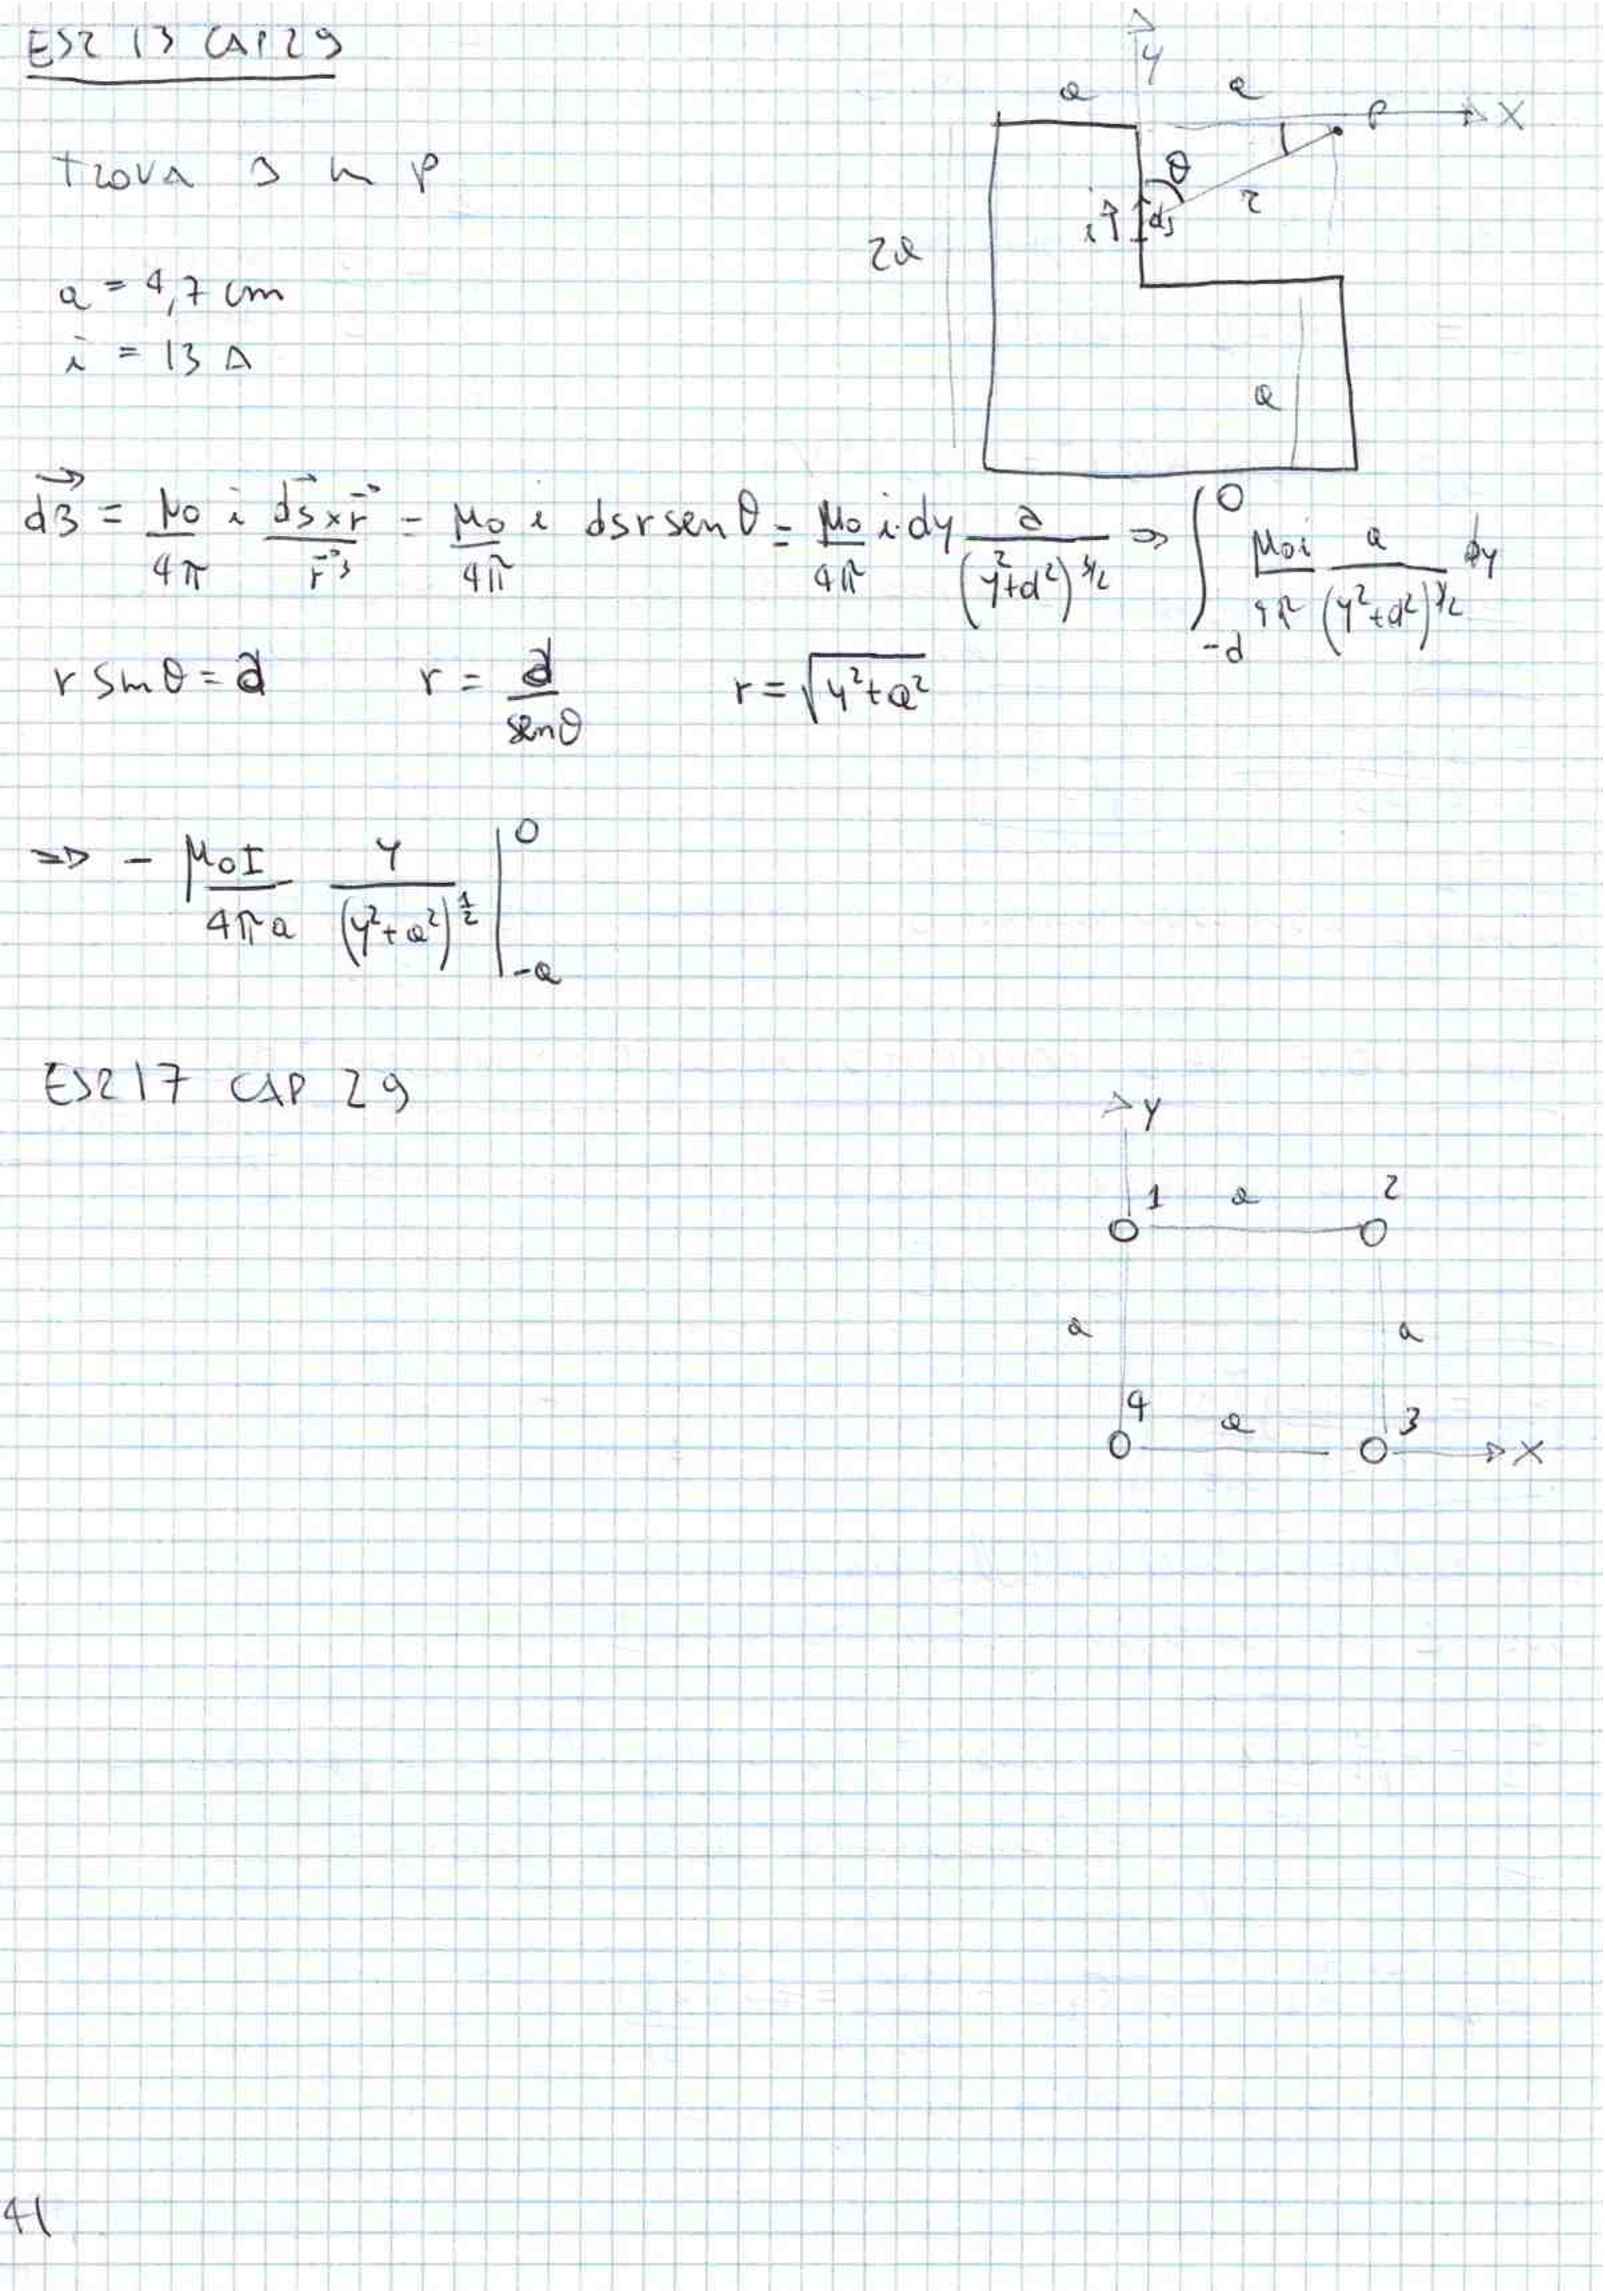 ES2 13 CAP 29
TROVA B in P
a = 4,7 cm
i = 13 A
y
a
a
P
X
θ
r
i
ds
2a
a
dB⃗ = μ₀/4π i ds⃗ × r⃗ / r⃗³ = μ₀/4π i ds r sen θ = μ₀/4π i·dy a/(y²+a²)^3/2 ⇒ ∫_-a^0 μ₀i/4π a/(y²+a²)^3/2 dy
r sin θ = a r = a/senθ r = √(y²+a²)
⇒ - μ₀I/4πa y/(y²+a²)^1/2 |_-a^0
ES2 17 CAP 29
y
1 a 2
a a
4 a 3
X
41